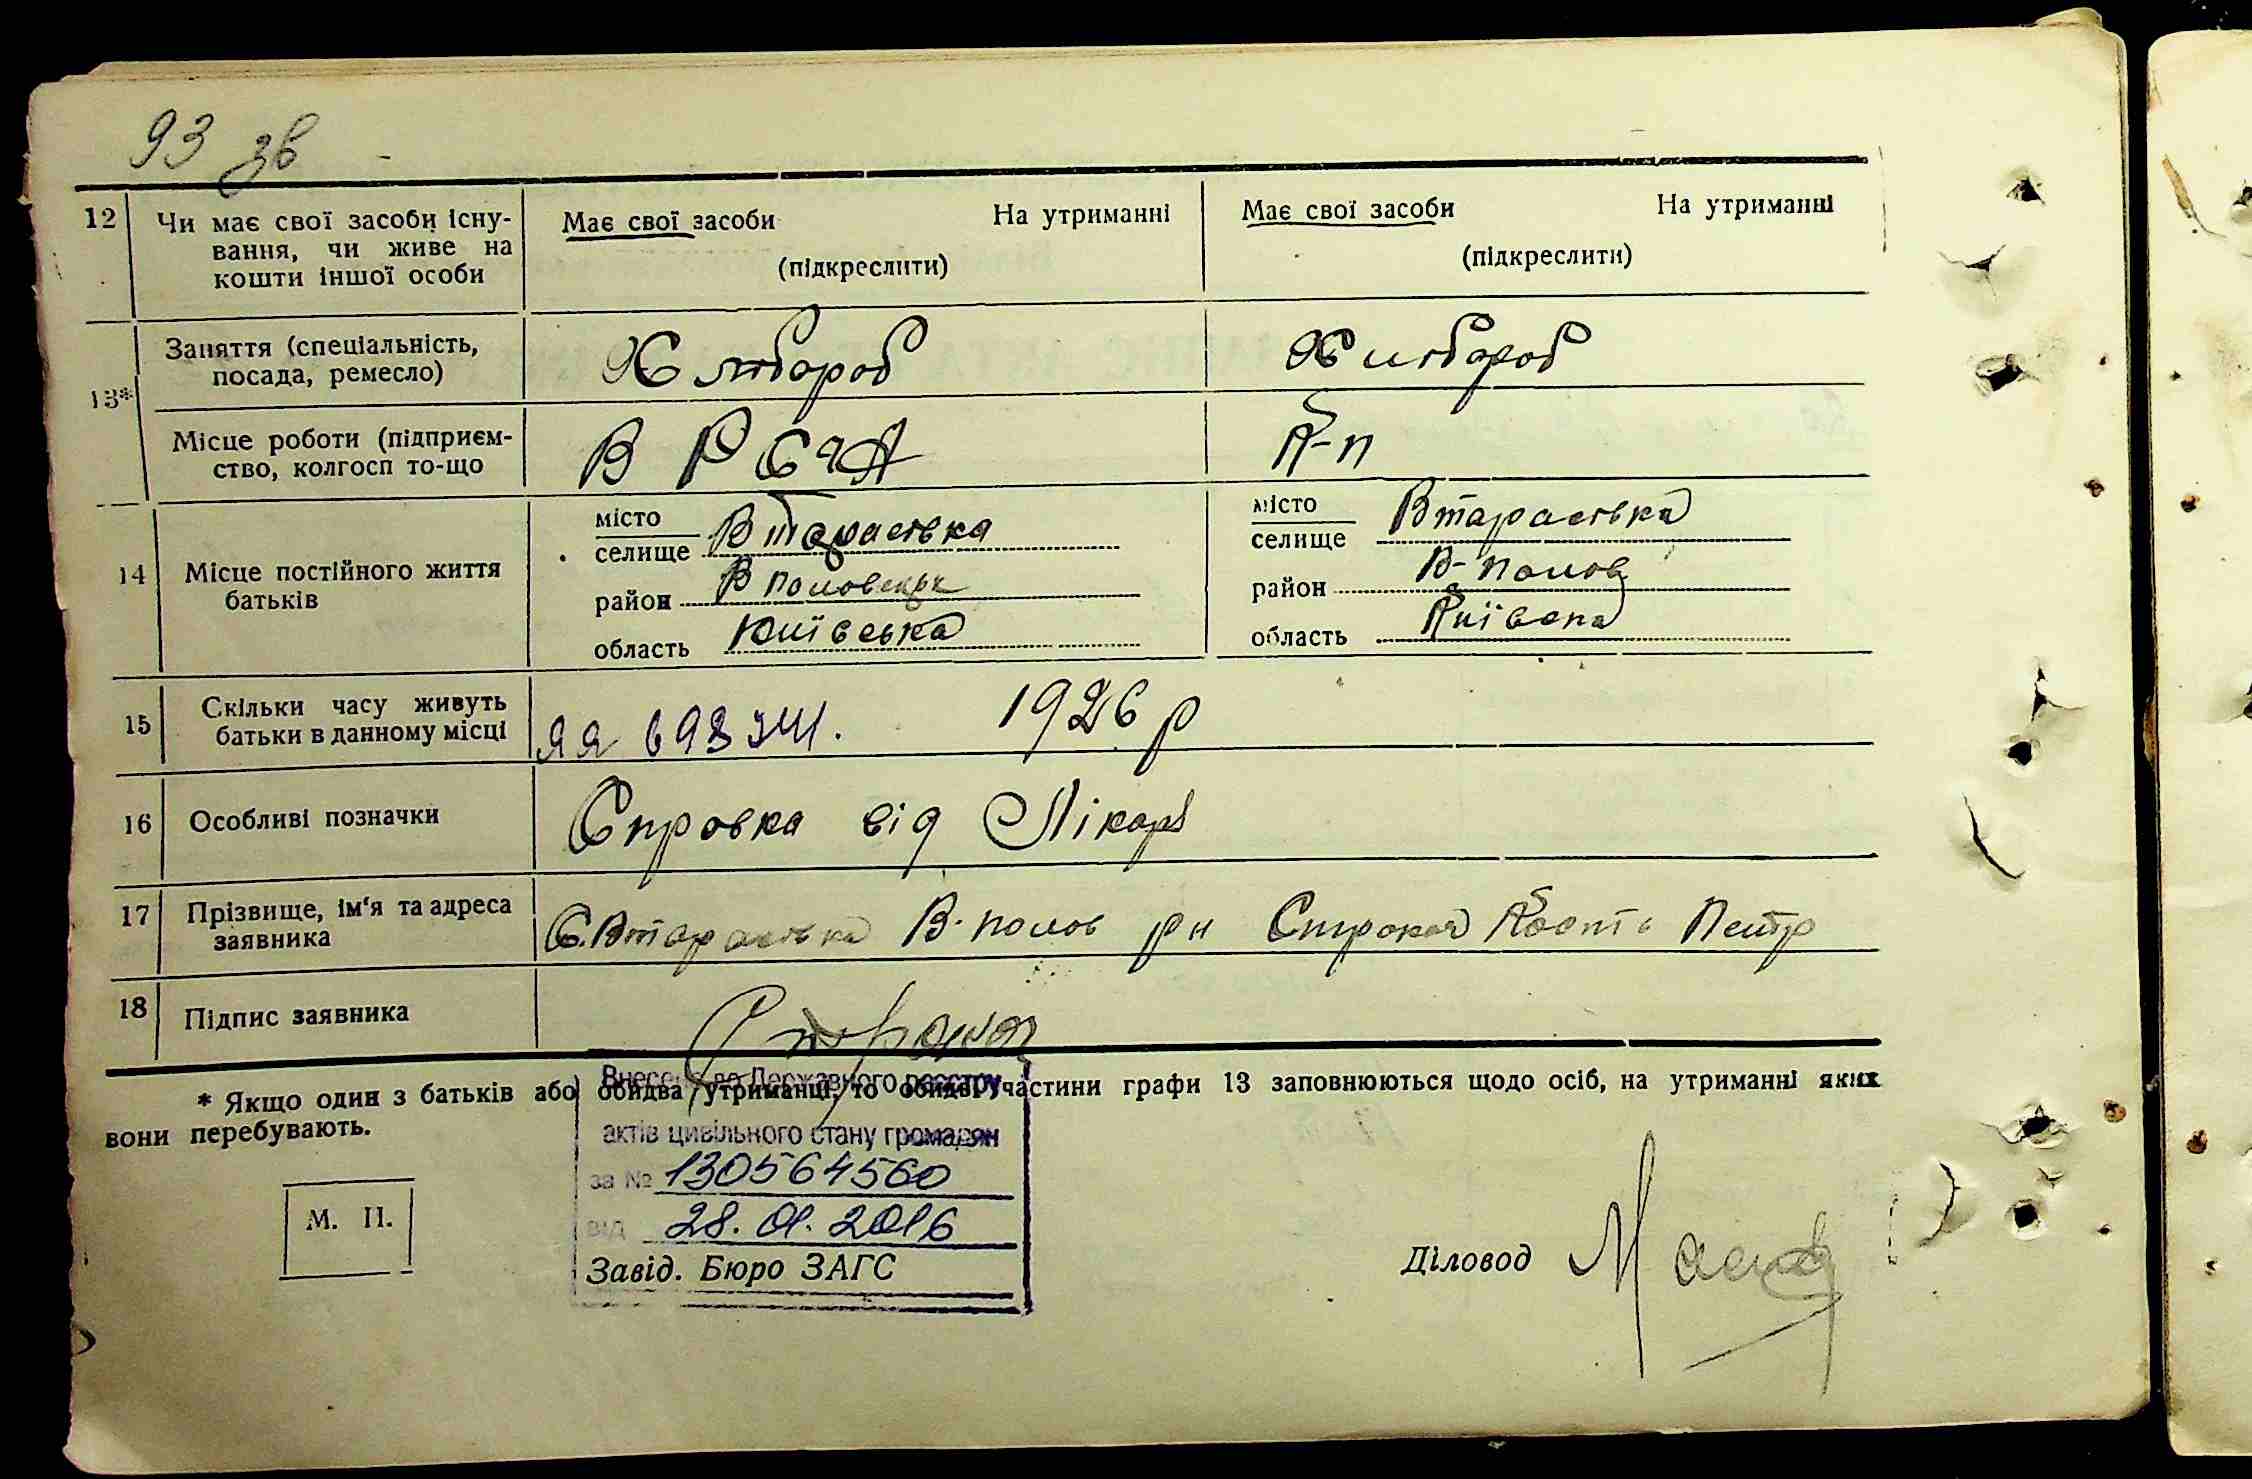 93 зв
12 Чи має свої засоби існу-
вання, чи живе на
кошти іншої особи
Має свої засоби На утриманні
(підкреслити)
Має свої засоби На утриманні
(підкреслити)
13*
Заняття (спеціальність,
посада, ремесло)
Хлібороб
Хлібороб
Місце роботи (підприєм-
ство, колгосп то-що
В РСЧА
К-п
14 Місце постійного життя
батьків
місто
селище Втарасівка
район В половецьк
область Київська
місто
селище Втарасівка
район В-полов
область Київська
15 Скільки часу живуть
батьки в данному місці
ЯЯ 698341. 1926 р
16 Особливі позначки
Спровка від Лікаря
17 Прізвище, ім'я та адреса
заявника
С. Втарасівка В-полов рн Строкач Петр
18 Підпис заявника
Строкач
* Якщо один з батьків або обидва утриманці, то обидві частини графи 13 заповнюються щодо осіб, на утриманні яких
вони перебувають.
Внесено до Державного реєстру
актів цивільного стану громадян
за № 130564560
від 28.01.2016
Завід. Бюро ЗАГС
М. П.
Діловод